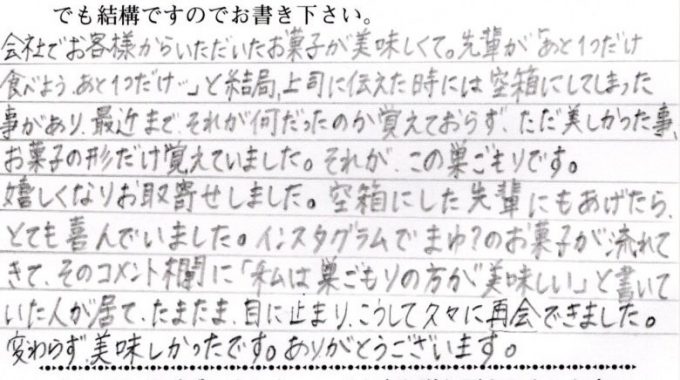 でも結構ですのでお書き下さい。
会社でお客様からいただいたお菓子が美味しくて。先輩が「あと1つだけ
食べよう、あと1つだけ…」と結局、上司に伝えた時には空箱にしてしまった
事があり、最近まで、それが何だったのか覚えておらず、ただ美しかった事、
お菓子の形だけ覚えていました。それが、この巣ごもりです。
嬉しくなりお取寄せしました。空箱にした先輩にもあげたら、
とても喜んでいました。インスタグラムでまゆ?のお菓子が流れて
きて、そのコメント欄に「私は巣ごもりの方が美味しい」と書いて
いた人が居て、たまたま、目に止まり、こうして久々に再会できました。
変わらず、美味しかったです。ありがとうございます。